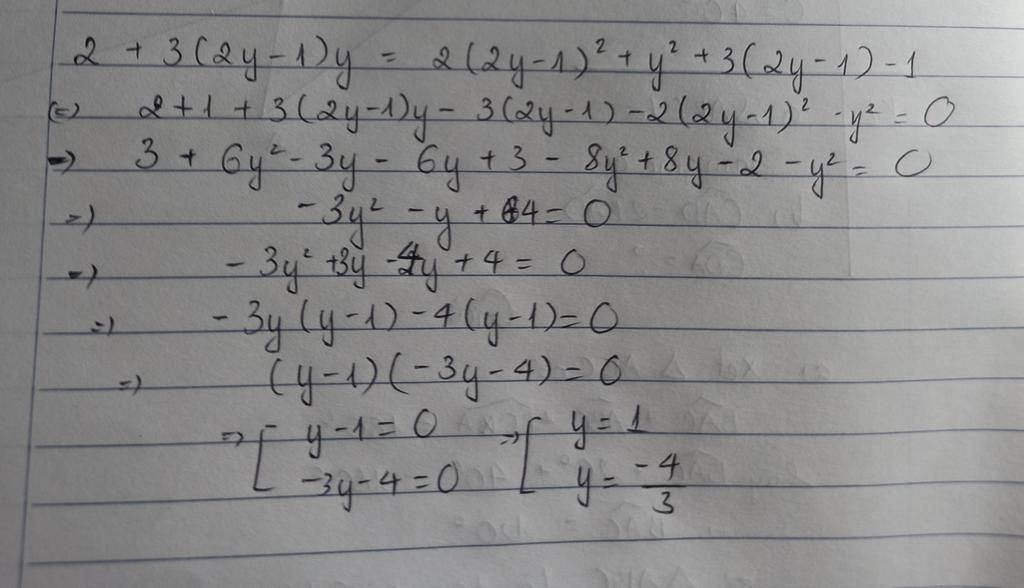 2 + 3(2y-1)y = 2(2y-1)² + y² + 3(2y-1) - 1
(=) 2+1 + 3(2y-1)y - 3(2y-1) - 2(2y-1)² - y² = 0
=) 3 + 6y² - 3y - 6y + 3 - 8y² + 8y - 2 - y² = 0
=) -3y² - y + 4 = 0
=) -3y² + 3y - 4y + 4 = 0
=) -3y(y-1) - 4(y-1) = 0
=) (y-1)(-3y-4) = 0
=) [ y-1 = 0 =) [ y = 1
-3y-4 = 0 y = -4/3